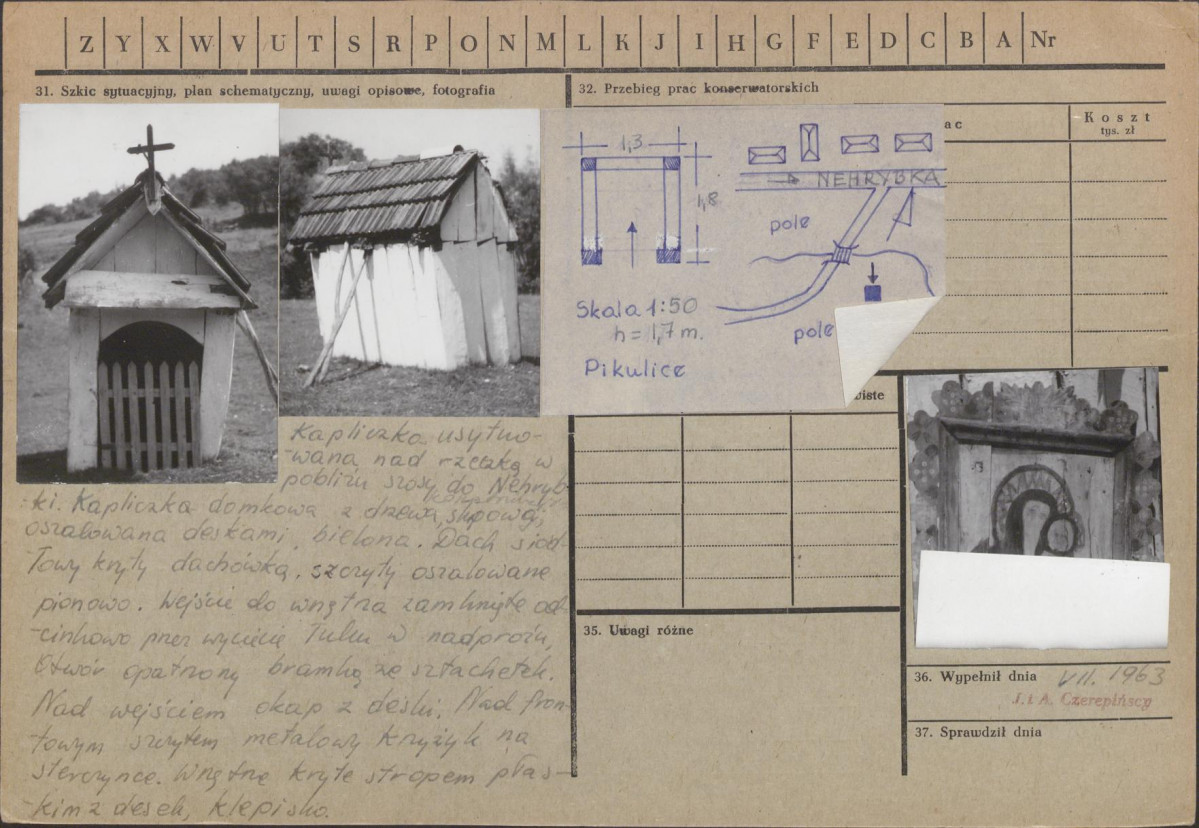 Z Y X W V U T S R P O N M L K J I H G F E D C B A Nr
31. Szkic sytuacyjny, plan schematyczny, uwagi opisowe, fotografia
32. Przebieg prac konserwatorskich
ac
Koszt
tys. zł
1,3
1,8
Skala 1:50
h = 1,7 m.
Pikulice
NEHRYBKA
pole
pole
iste
Kapliczka usytuo-
-wana nad rzeczką w
pobliżu szosy do Nehryb-
-ki. Kapliczka domkowa z drzewa, słupowa,
oszalowana deskami, bielona. Dach siod-
łowy kryty dachówką, szczyty oszalowane
pionowo. Wejście do wnętrza zamknięte od-
-cinkowo przez wycięcie łuku w nadprożu,
Otwór opatrzony bramką ze sztachetek.
Nad wejściem okap z deski. Nad fron-
towym szczytem metalowy krzyżyk na
sterczynce. Wnętrze kryte stropem płas-
-kim z desek, klepisko.
35. Uwagi różne
36. Wypełnił dnia VII. 1963
J. i A. Czerepińscy
37. Sprawdził dnia